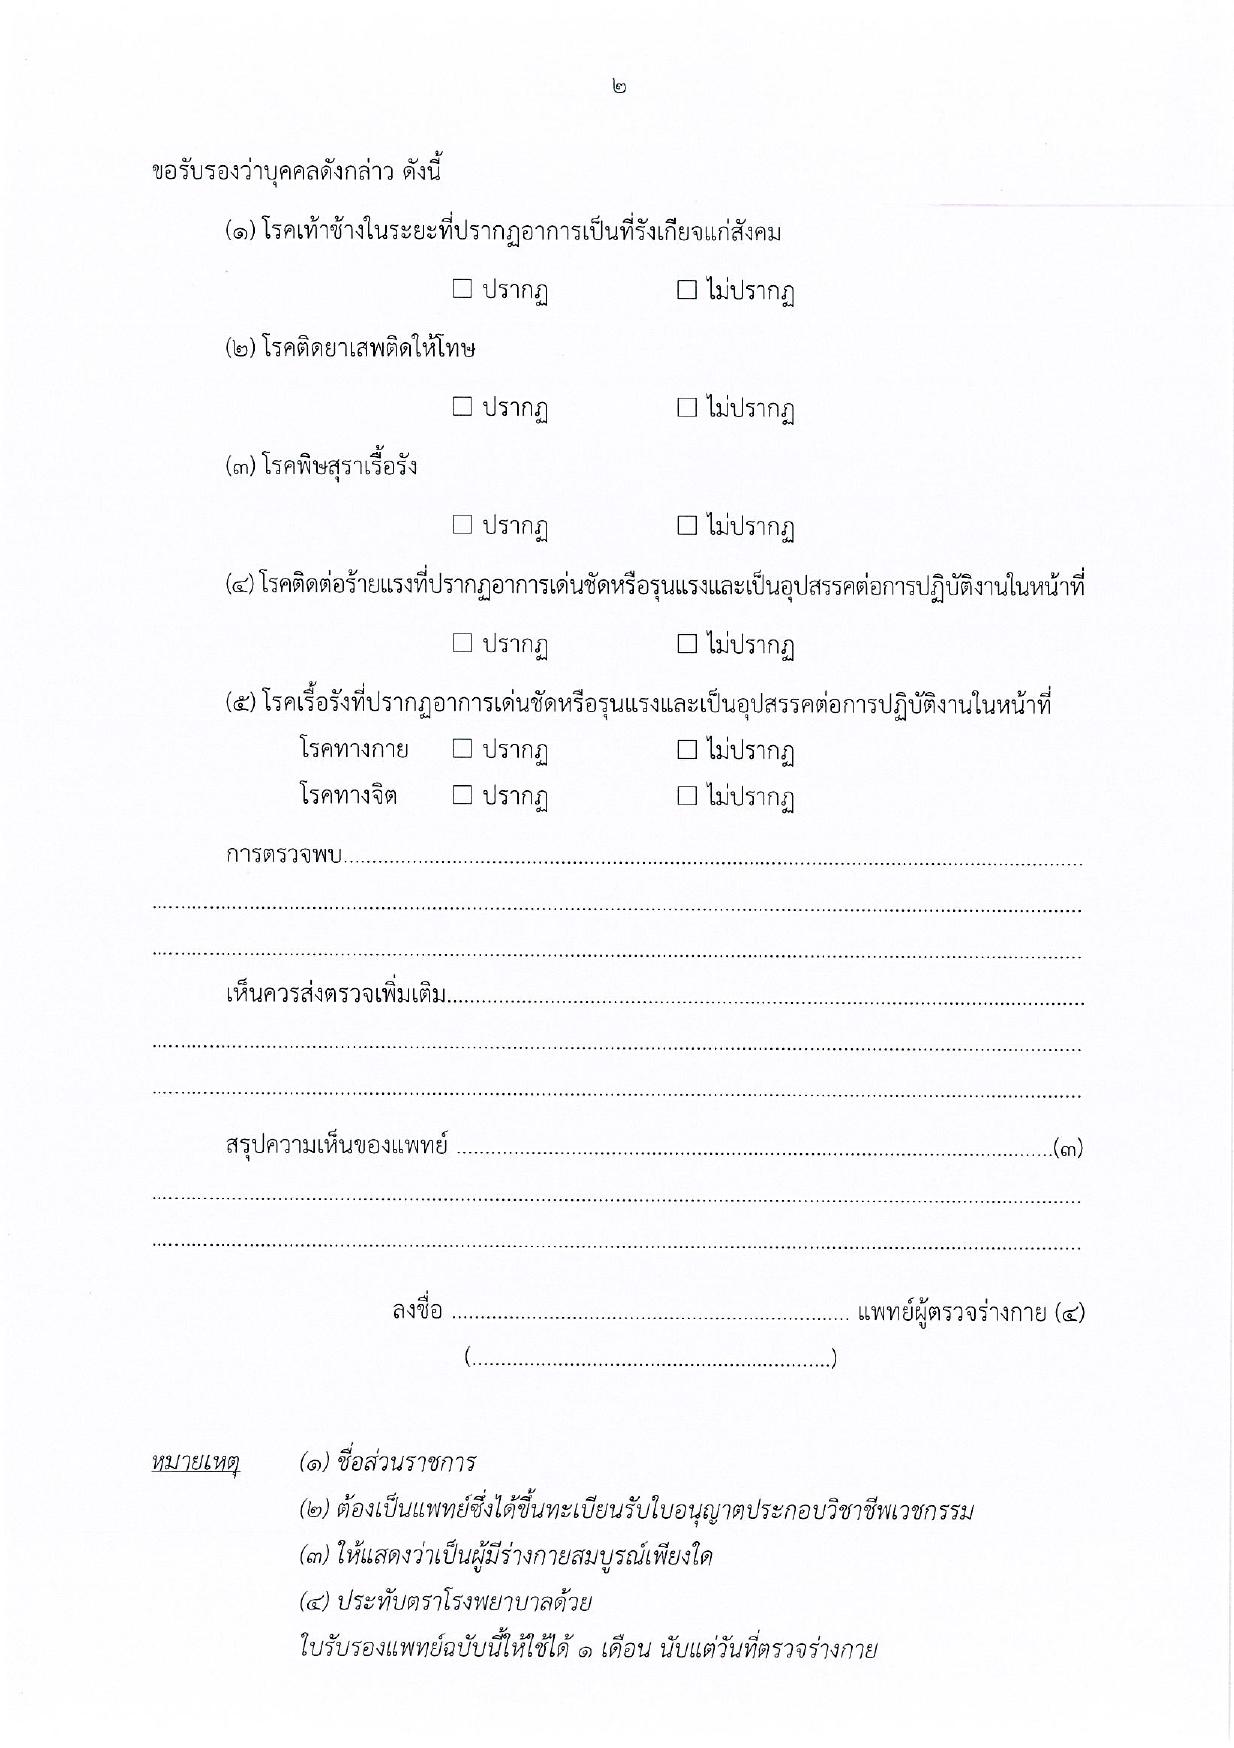 ๒
ขอรับรองว่าบุคคลดังกล่าว ดังนี้
(๑) โรคเท้าช้างในระยะที่ปรากฏอาการเป็นที่รังเกียจแก่สังคม
☐ ปรากฏ ☐ ไม่ปรากฏ
(๒) โรคติดยาเสพติดให้โทษ
☐ ปรากฏ ☐ ไม่ปรากฏ
(๓) โรคพิษสุราเรื้อรัง
☐ ปรากฏ ☐ ไม่ปรากฏ
(๔) โรคติดต่อร้ายแรงที่ปรากฏอาการเด่นชัดหรือรุนแรงและเป็นอุปสรรคต่อการปฏิบัติงานในหน้าที่
☐ ปรากฏ ☐ ไม่ปรากฏ
(๕) โรคเรื้อรังที่ปรากฏอาการเด่นชัดหรือรุนแรงและเป็นอุปสรรคต่อการปฏิบัติงานในหน้าที่
โรคทางกาย ☐ ปรากฏ ☐ ไม่ปรากฏ
โรคทางจิต ☐ ปรากฏ ☐ ไม่ปรากฏ
การตรวจพบ..........
เห็นควรส่งตรวจเพิ่มเติม..........
สรุปความเห็นของแพทย์ ..........(๓)
ลงชื่อ .......... แพทย์ผู้ตรวจร่างกาย (๔)
(..........)
หมายเหตุ (๑) ชื่อส่วนราชการ
(๒) ต้องเป็นแพทย์ซึ่งได้ขึ้นทะเบียนรับใบอนุญาตประกอบวิชาชีพเวชกรรม
(๓) ให้แสดงว่าเป็นผู้มีร่างกายสมบูรณ์เพียงใด
(๔) ประทับตราโรงพยาบาลด้วย
ใบรับรองแพทย์ฉบับนี้ให้ใช้ได้ ๑ เดือน นับแต่วันที่ตรวจร่างกาย